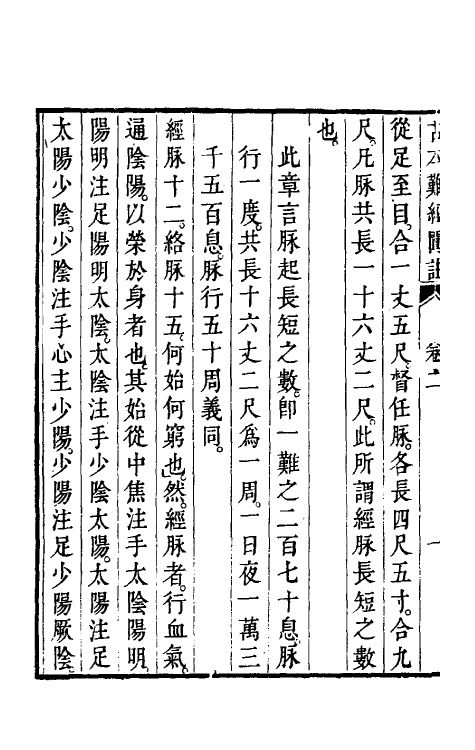 古本難經闡註 卷二 一
從足至目。合一丈五尺。督任脉。各長四尺五寸。合九
尺。凡脉共長一十六丈二尺。此所謂經脉長短之數
也。
此章言脉起長短之數。卽一難之二百七十息。脉
行一度。共長十六丈二尺爲一周。一日夜一萬三
千五百息。脉行五十周義同。
經脉十二。絡脉十五。何始何窮也。然。經脉者。行血氣。
通陰陽。以榮於身者也。其始從中焦注手太陰陽明。
陽明注足陽明太陰。太陰注手少陰太陽。太陽注足
太陽少陰。少陰注手心主少陽。少陽注足少陽厥陰。